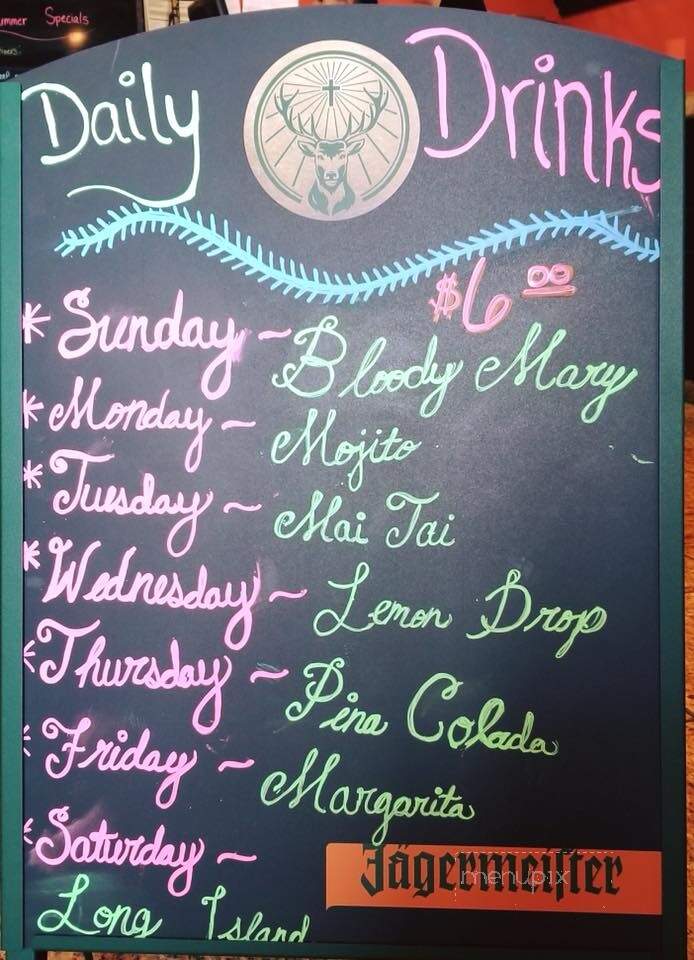 ummer Specials
Daily Drinks
$6.00
* Sunday ~ Bloody Mary
* Monday ~ Mojito
* Tuesday ~ Mai Tai
* Wednesday ~ Lemon Drop
* Thursday ~ Pina Colada
* Friday ~ Margarita
* Saturday ~
Long Island
Jägermeister
menupix